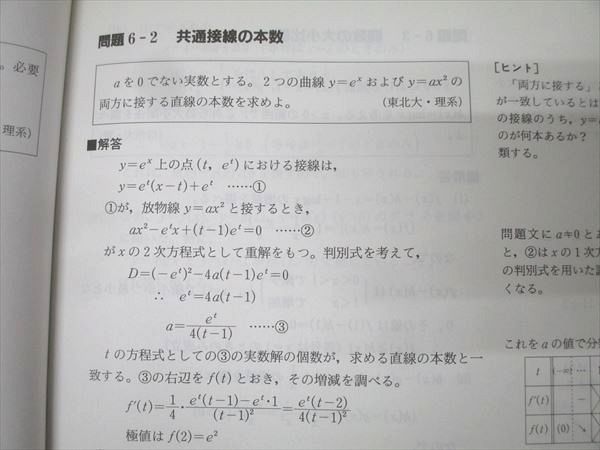 問題 6-2 共通接線の本数
。必要
理系)
aを0でない実数とする。2つの曲線 y=eˣ および y=ax² の
両方に接する直線の本数を求めよ。 (東北大・理系)
■解答
y=eˣ 上の点(t, eᵗ)における接線は,
y=eᵗ(x-t)+eᵗ ……①
①が, 放物線 y=ax² と接するとき,
ax²-eᵗx+(t-1)eᵗ=0 ……②
がxの2次方程式として重解をもつ。判別式を考えて,
D=(-eᵗ)²-4a(t-1)eᵗ=0
∴ eᵗ=4a(t-1)
a=eᵗ/4(t-1) ……③
tの方程式としての③の実数解の個数が, 求める直線の本数と一
致する。③の右辺をf(t)とおき, その増減を調べる。
f'(t)=1/4・eᵗ(t-1)-eᵗ・1/(t-1)²=eᵗ(t-2)/4(t-1)²
極値は f(2)=e²
[ヒント]
「両方に接する」
が一致しているとは
の接線のうち, y=
のが何本あるか?
類する。
問題文に a≠0 と
と, ②はxの1次
の判別式を用いた
くなる。
これをaの値で分
t (-∞ …
f'(t) -
f(t) (0) ↘